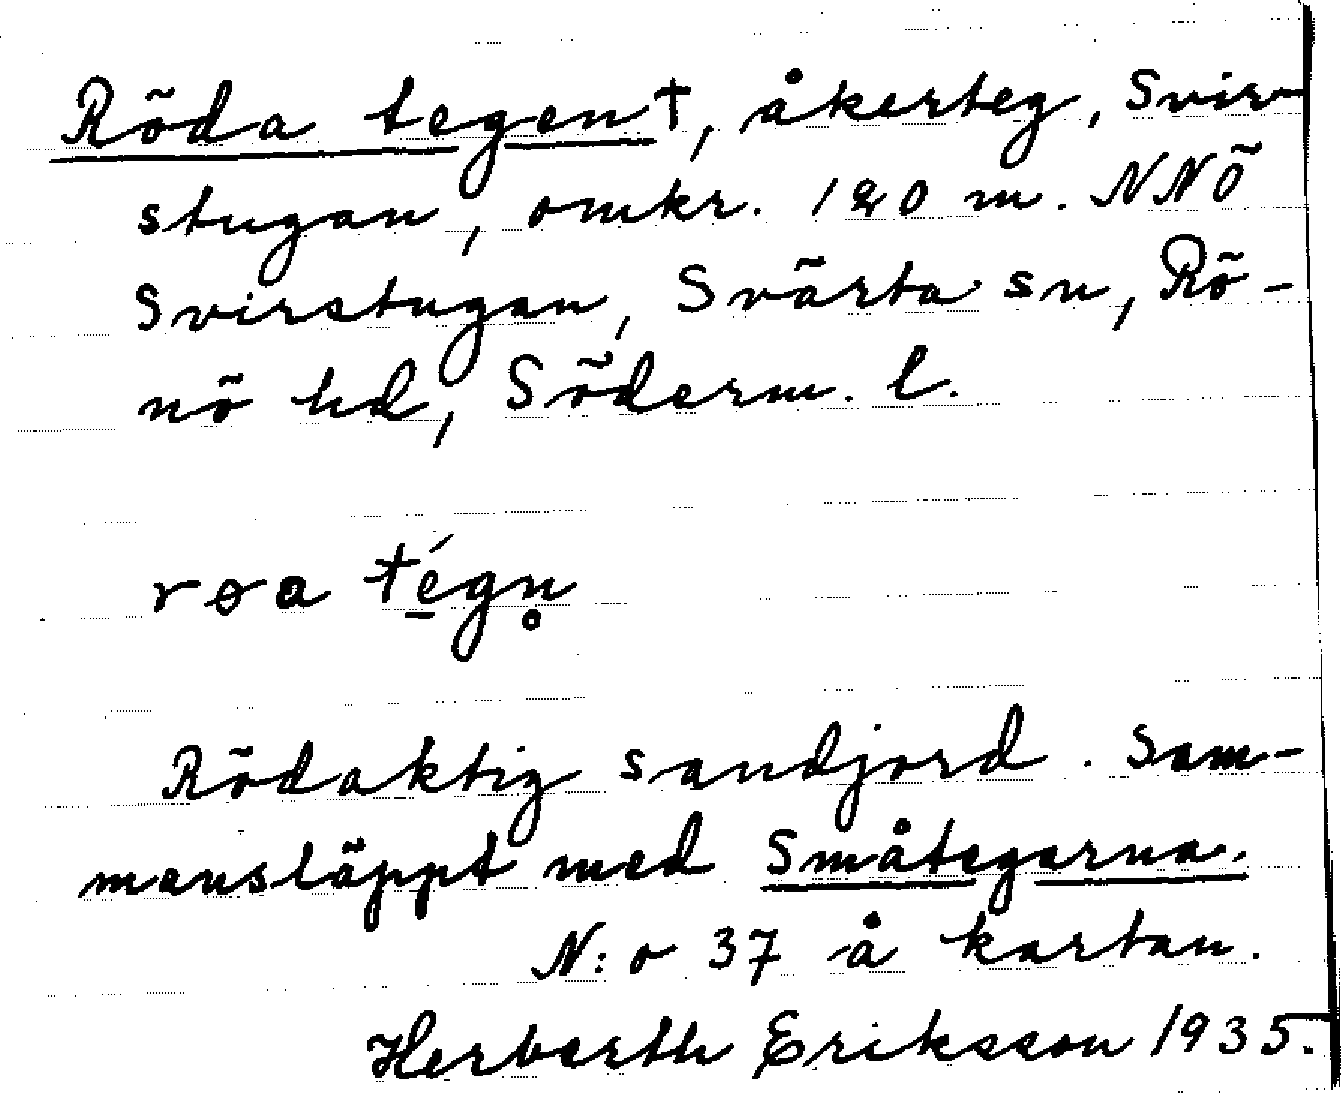 Röda tegen†, åkerteg, Svir-
stugan, omkr. 120 m. NNÖ
Svirstugan, Svärta sn, Rö-
nö hd, Söderm. l.
røa té̱gn̥
Rödaktig sandjord. Sam-
mansläppt med Småtegarna.
N:o 37 å kartan.
Herberth Eriksson 1935.